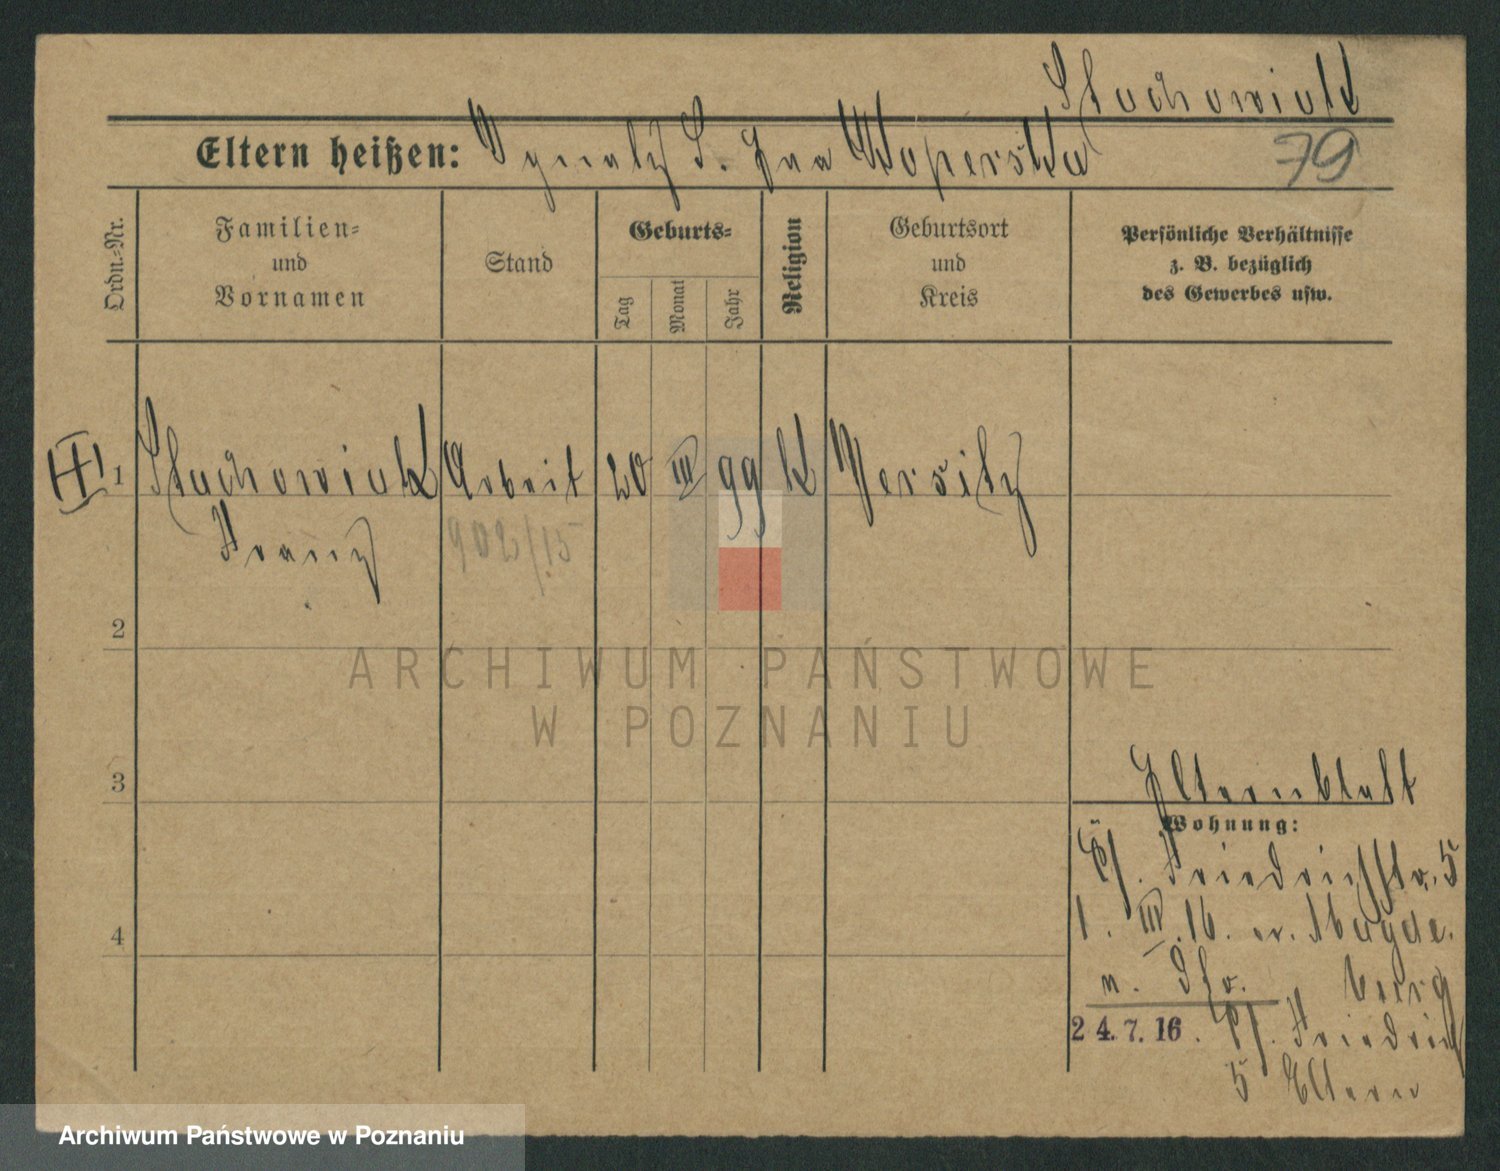 Stachowiak
Eltern heißen: Ignatz S. Eva Koperska
79
Ordn.-Nr.
Familien-
und
Vornamen
Stand
Geburts-
Tag
Monat
Jahr
Religion
Geburtsort
und
Kreis
Persönliche Verhältnisse
z. B. bezüglich
des Gewerbes usw.
1 Stachowiak Arbeit 20 III 99 K Wersitz
Franz 902/15
2
3
4
Elternblatt
Wohnung:
Friedrichstr. 5
1. III. 16. Magde-
berg
24.7.16. Friedrich
5 Eltern
ARCHIWUM PAŃSTWOWE
W POZNANIU
Archiwum Państwowe w Poznaniu